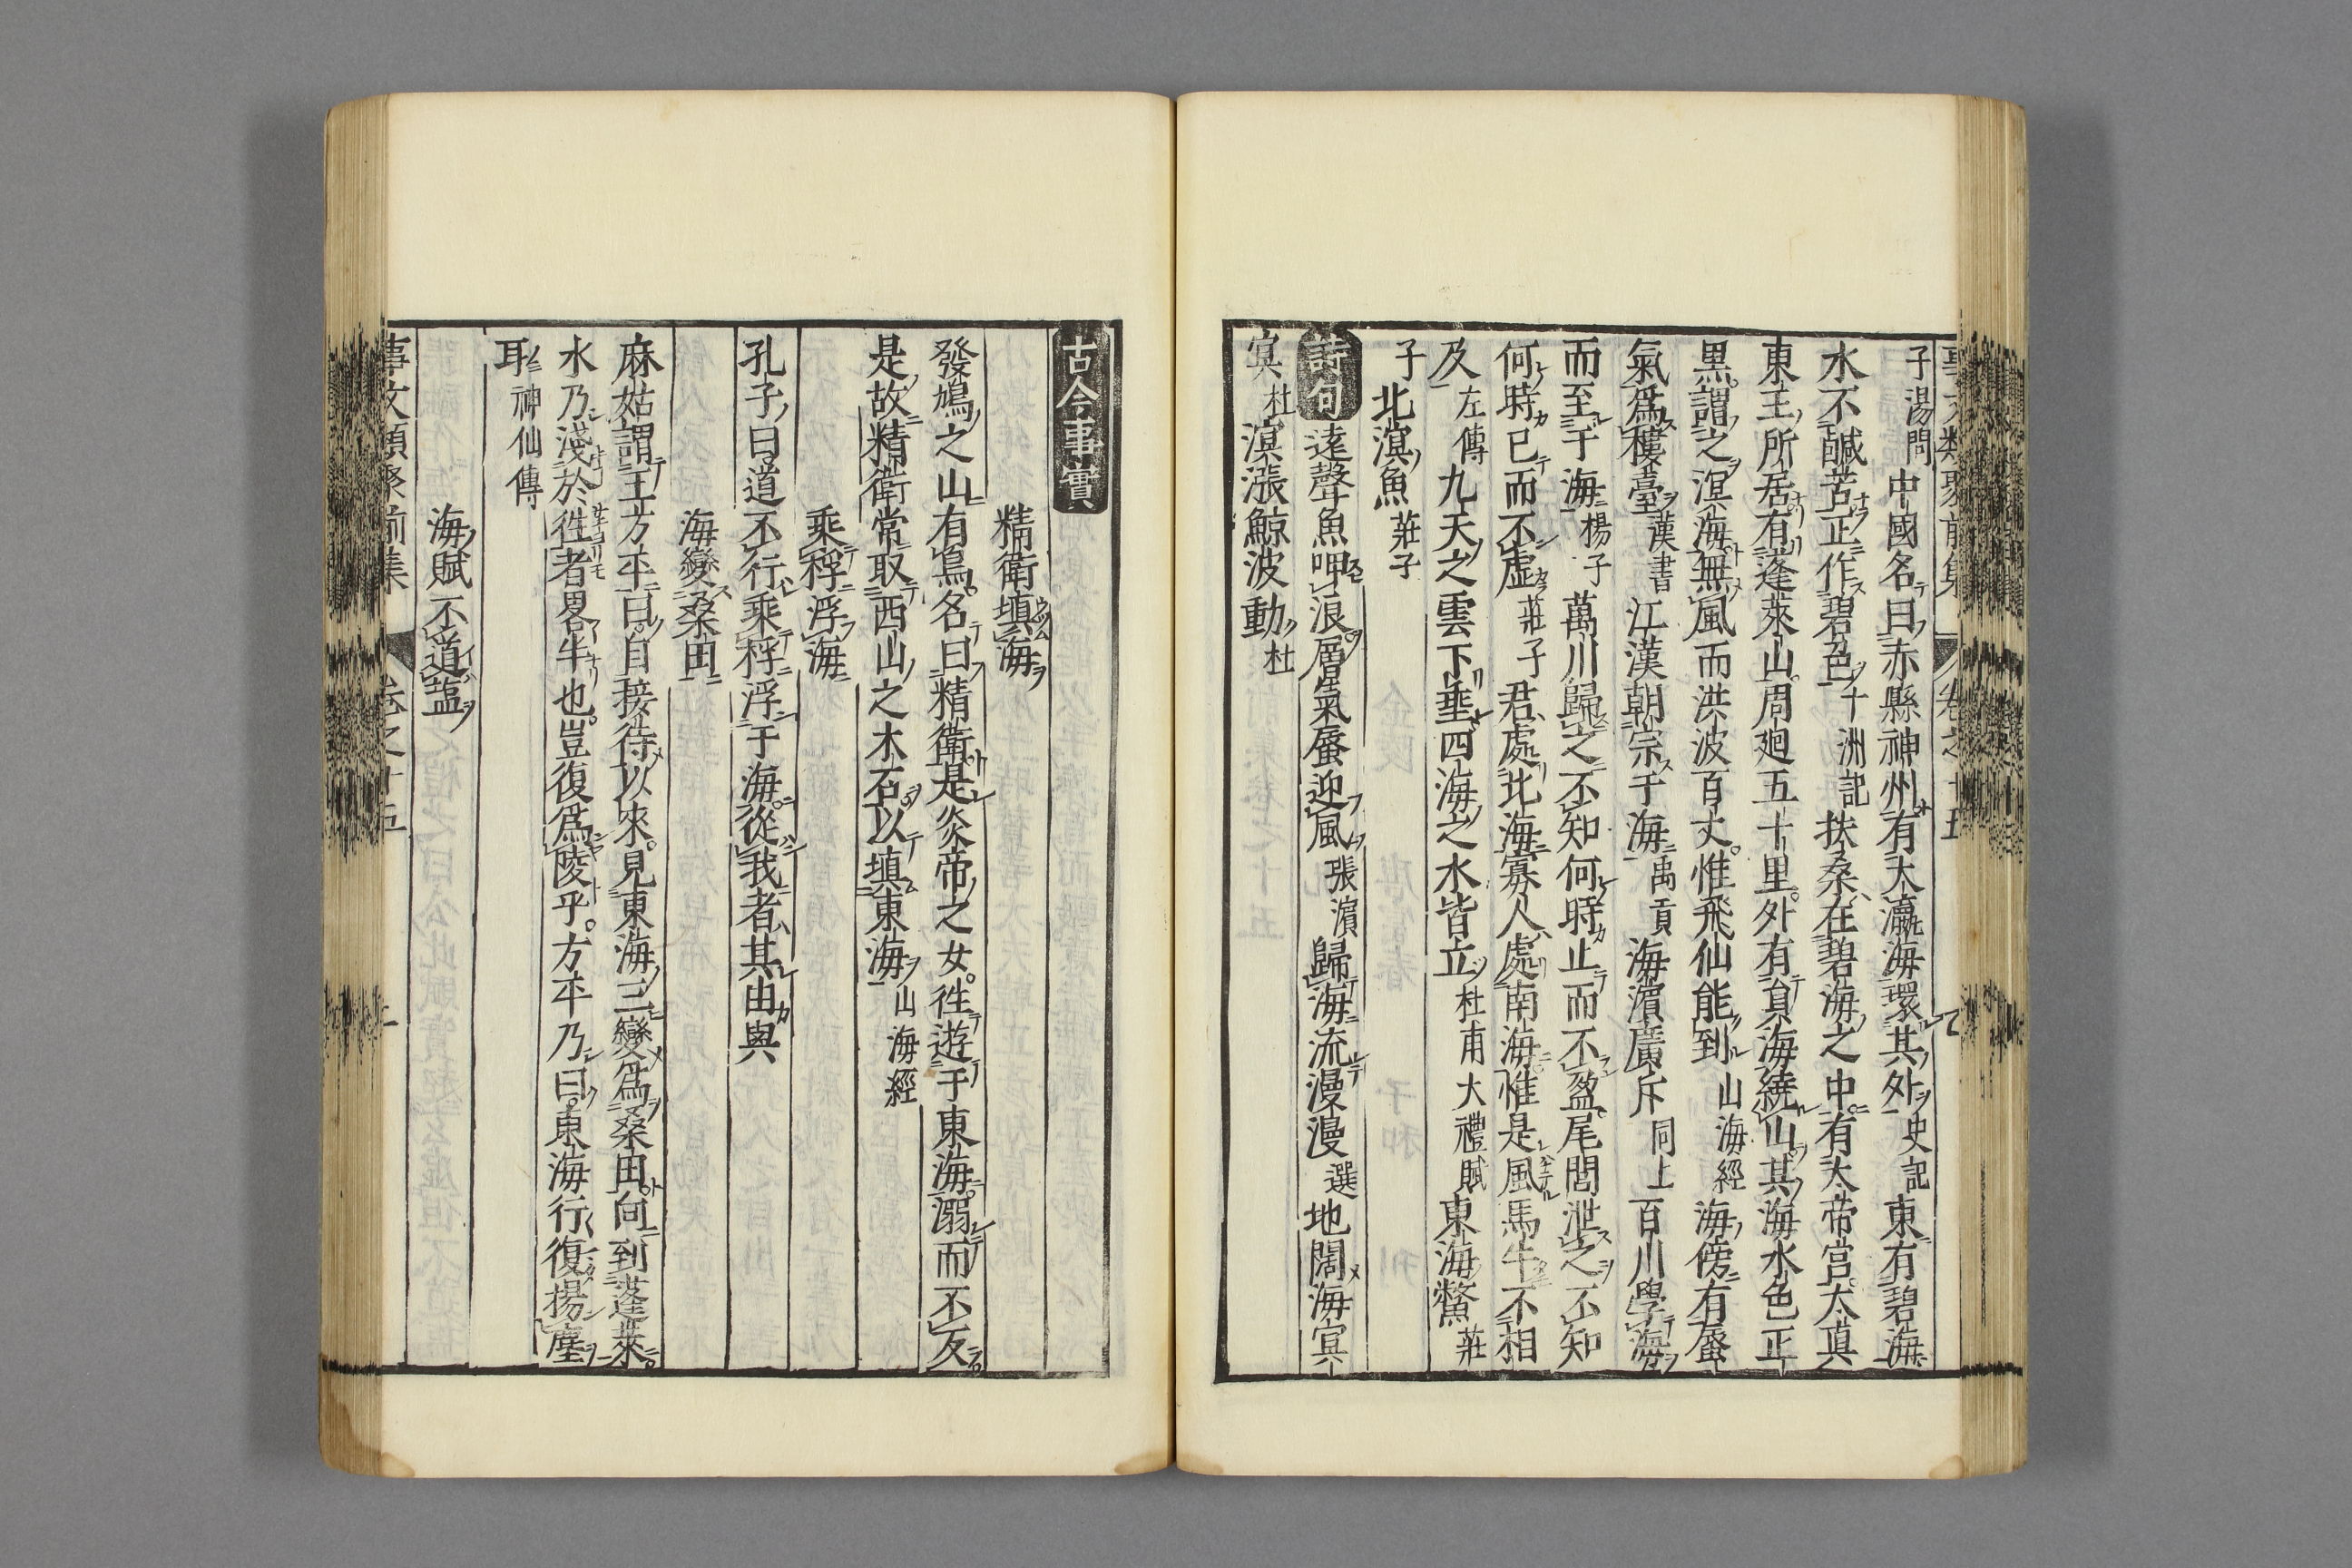 事文類聚前集 卷之十五
子湯問 中國名曰赤縣神州有大瀛海環其外史記東有碧海
水不鹹苦正作碧色十洲記扶桑在碧海之中有太帝宫太真
東王所居有蓬萊山周廻五十里外有員海繞山其海水色正
黒謂之溟海無風而洪波百丈惟飛仙能到山海經海傍有蜃
氣爲樓臺漢書江漢朝宗于海禹貢海濵廣斥同上百川學海
而至于海楊子萬川歸之不知何時止而不盈尾閭泄之不知
何時已而不虚莊子君處北海寡人處南海惟是風馬牛不相
及左傳九天之雲下垂四海之水皆立杜甫大禮賦東海鱉莊
子北溟魚莊子
詩句 逺聲魚呷浪層氣蜃迎風張濵歸海流漫漫選地闊海㝠
㝠杜溟漲鯨波動杜
古今事實
精衛塡海
發鳩之山有鳥名曰精衛是炎帝之女徃遊于東海溺而不反
是故精衛常取西山之木石以塡東海山海經
乘桴浮海
孔子曰道不行乘桴浮于海從我者其由與
海變桑田
麻姑謂王方平曰自接待以來見東海三變爲桑田向到蓬萊
水乃淺於徃者畧半也豈復爲陵乎方平乃曰東海行復揚塵
耳神仙傳
海賦不道鹽
事文類聚前集 卷之十五